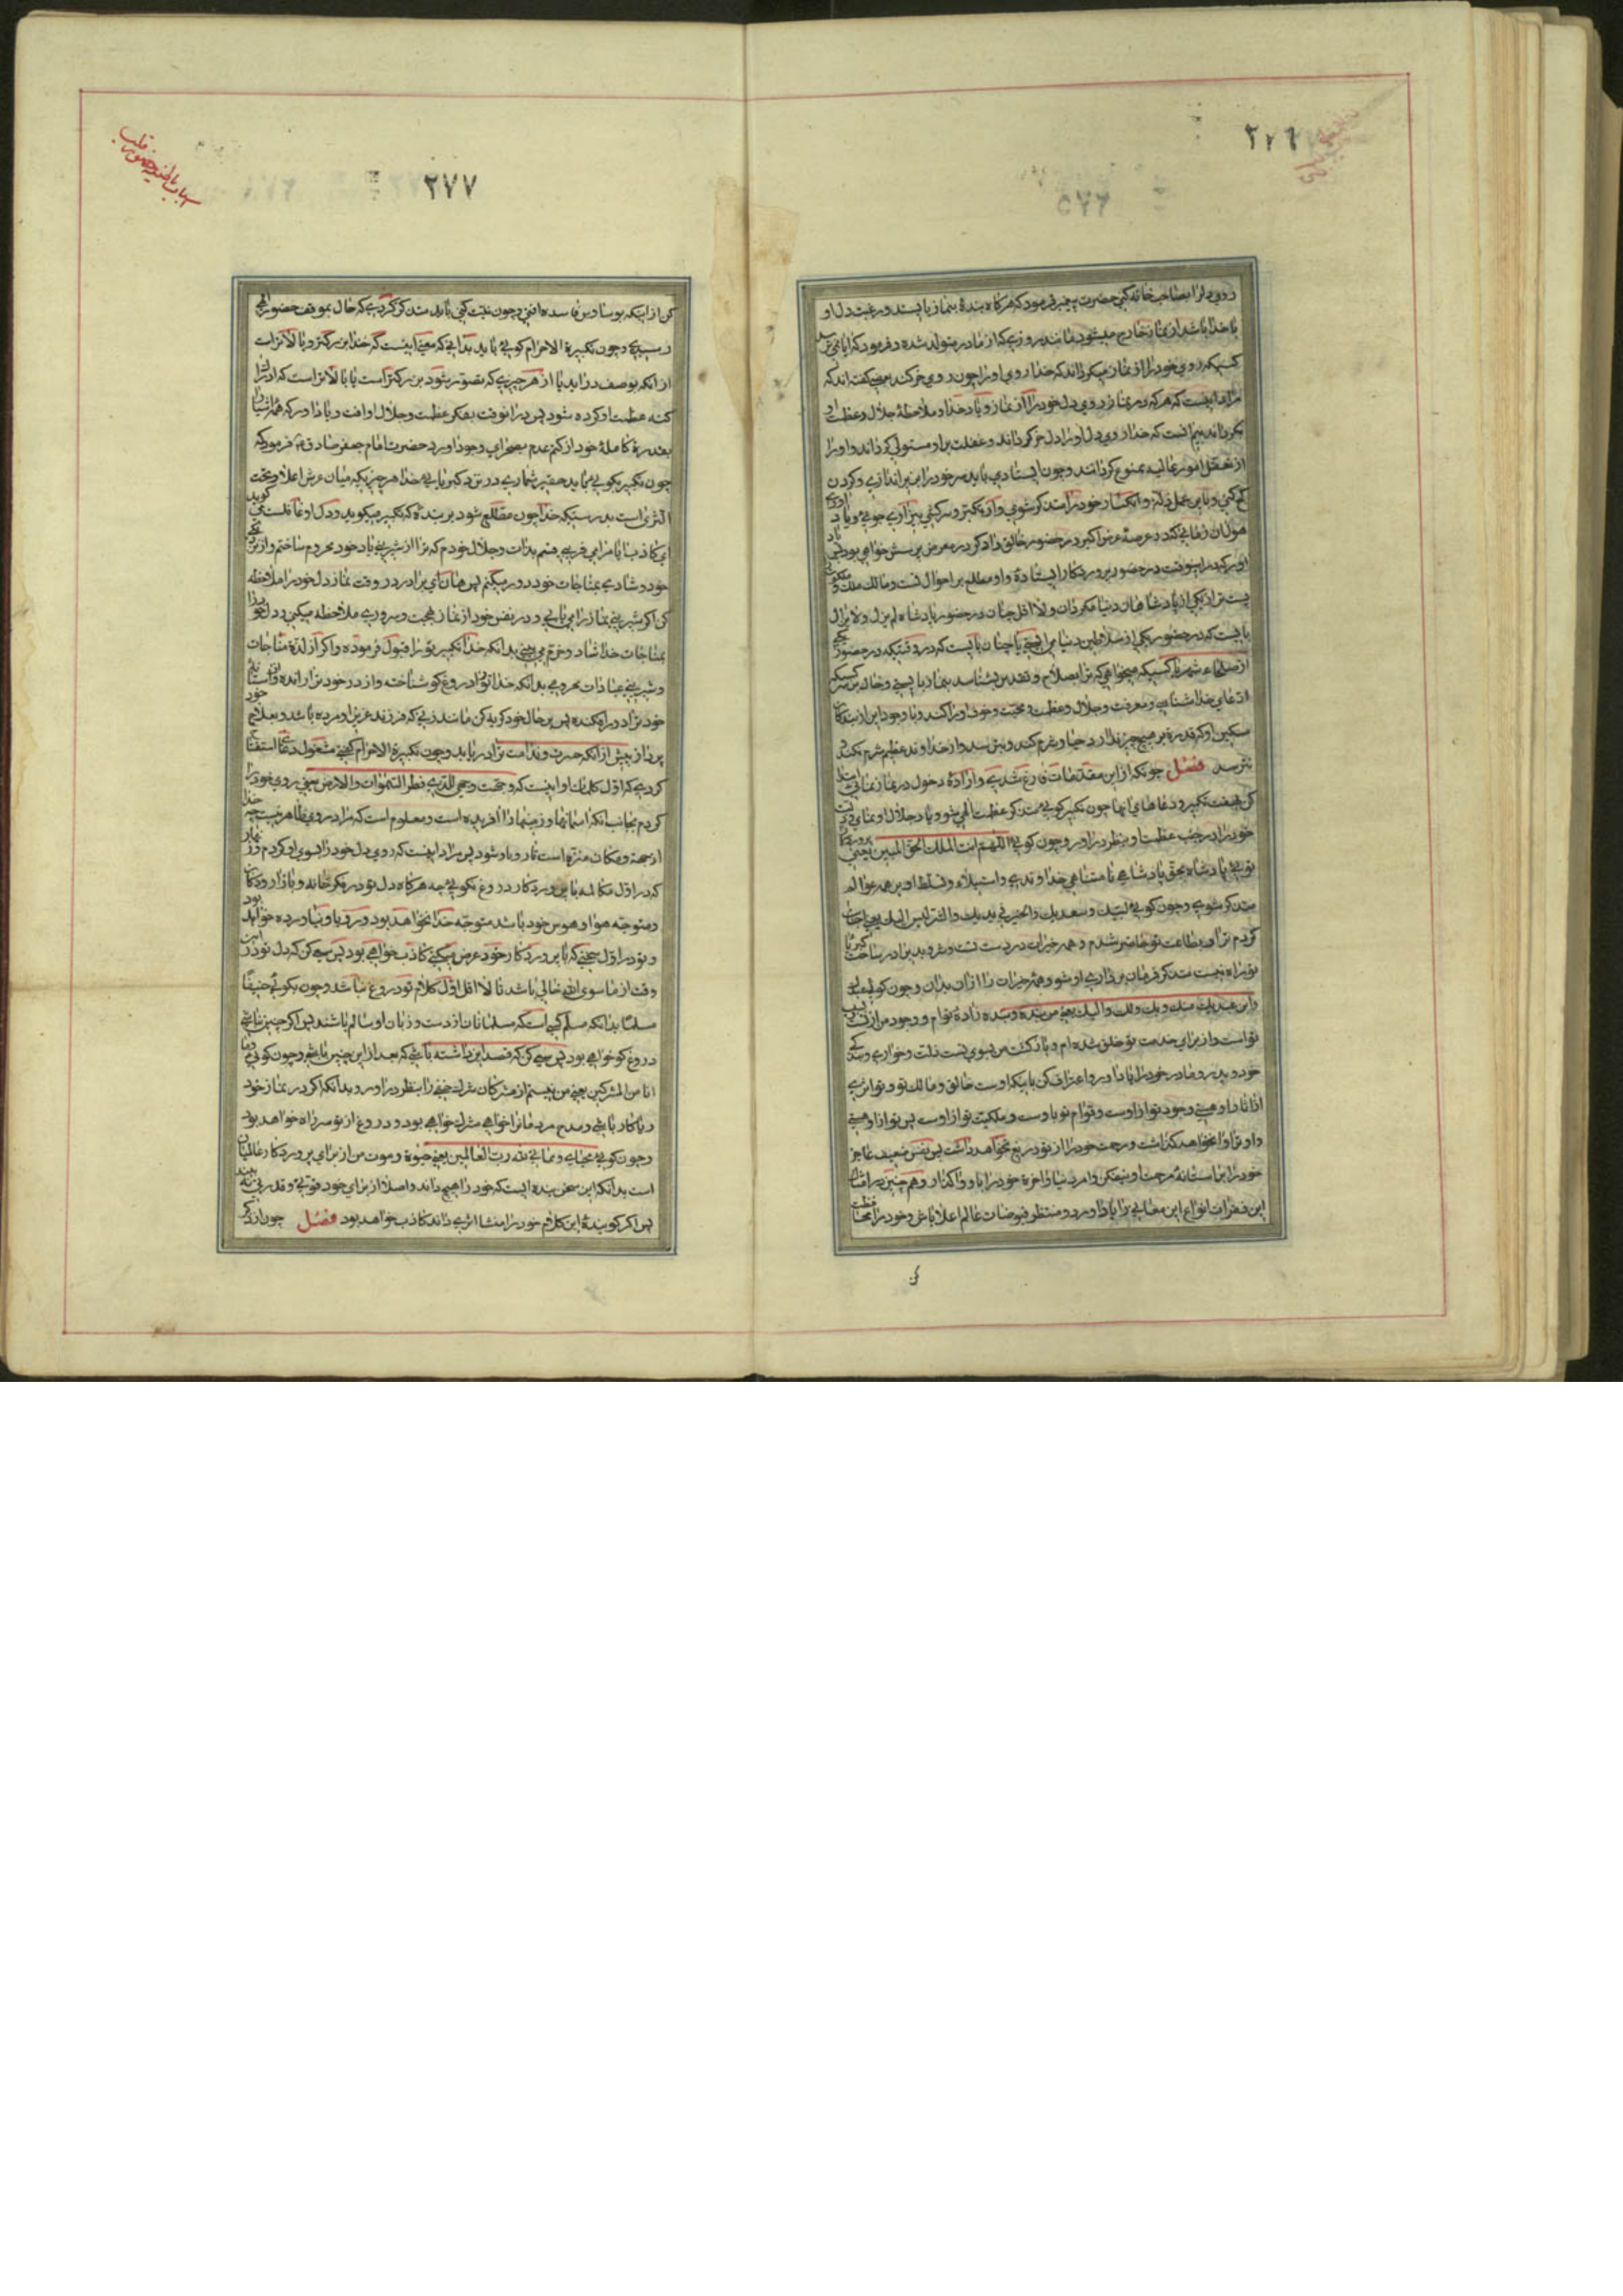 ٢٧٦
روی دل را بصاحب خانه کنی حضرت پیغمبر فرمود که هرگاه بنده بنماز بایستد و رغبت دل او
با خدا باشد از نماز خارج میشود مانند روزی که از مادر متولد شده و فرمود که ایا نمی ترسد
کسیکه روی خود را از نماز میکرداند که خدا روی او را چون روی خر کند بعضی کفته اند که
مراد اینست که هر که در نماز روی دل خود را از نماز و یاد خدا و ملاحظهٔ جلال و عظمت او
بکرداند بیم انست که خدا روی دل او را دل خر کرداند و غفلت بر او مستولی کرداند و او را
از تعقل امور عالیه ممنوع کرداند و چون ایستادی باید سر خود را بزیر اندازی و کردن
کج کنی و باین عمل ذلت و انکسار خود را متذکر شوی و از تکبر و سرکشی بیزاری جوئی و یاد اوری
هول ان زمانی که در عرصهٔ عرض اکبر در حضور خالق دادکر در معرض پرسش خواهی بود پس یاد
اور که در اینوقت در حضور پروردکار ایستادهٔ و او مطلع بر احوال تست و مالک ملک و ملکوت
پست تر از یکی از پادشاهان دنیا مکردان و لا اقل چنان در حضور پادشاه لم یزل و لا یزال
بایست که در حضور یکی از سلاطین دنیا می ایستی یا چنان بایست که در وقتیکه در حضور یکی
از صلحاء شهر یا کسیکه میخواهی که ترا بصلاح و تقدس بشناسد بنماز بایستی و خاک بر سر کسیکه
ادعای خدا شناسی و معرفت و جلال و عظمت و محبت و خوف او را کند و با وجود این از بندکان
مسکین او که قدرة بر هیچ چیز ندارد حیا و شرم کند و بترسد و از خداوند عظیم شرم نکند و
نترسد فصل چونکه از این مقدمات فارغ شدی و ارادهٔ دخول در نماز نمائی ابتدا
کن بهفت تکبیر و دعاهای انها چون تکبیر کوئی متذکر عظمت الهی شو و یاد جلال او نمای و پستی
خود را در جنب عظمت او بنظر در اور و چون کوئی اللهم انت الملک الحق المبین یعنی پروردکارا
توئی پادشاه بحق پادشاهی نا متناهی خداوندی و استیلاء و تسلط او بر همه عوالم
متذکر شوی و چون کوئی لبیک و سعدیک و الخیر فی یدیک و الشر لیس الیک یعنی اجابت
کردم ترا و بطاعت تو حاضر شدم و همه خیرات در دست تست و شر و بد را در ساحت کبریا
تو راه نیست متذکر فرمان برداری او شو و همه خیرات را از ان بدان و چون کوئی عبدک
و ابن عبدیک منک و بک و لک و الیک یعنی من بنده و بنده زادهٔ توام و وجود من از تست و بسبب
تو است و از برای خدمت تو خلق شده ام و بازکشت من بسوی تست ذلت و خواری و بندکی
خود و پدر و مادر خود را یاد اور و اعتراف کن باینکه اوست خالق و مالک تو و تو اثری
از اثار او هستی وجود تو از اوست و قوام تو باوست و ملکیت تو از اوست پس تو از او هستی
و او ترا وا نخواهد کذاشت و رحمت خود را از تو دریغ نخواهد داشت پس نفس ضعیف عاجز
خود را بر استانهٔ مرحمت او بیفکن و امر دنیا و اخرة خود را باو واکذار و هم چنین در اثنای
این فقرات انواع این معانی را بیاد اورد و منتظر فیوضات عالم اعلا باش و خود را محافظت
کن
اسباب باطنیه حضور قلب
٢٧٧
کن از اینکه بوساوس فاسده افتی و چون نیت کنی باید متذکر کردی که حال بموقف حضور الهی
رسیدی و چون تکبیرة الاحرام کوئی باید بدانی که معنی اینست که خدا بزرکتر و بالاتر است
از انکه بوصف در اید یا از هر چیزی که تصور شود بزرکتر است یا بالاتر است که ادراک
کنه عظمت او کرده شود پس در انوقت بفکر عظمت و جلال او افت و یاد اور که همهٔ اشیا را
بقدرة کاملهٔ خود از کتم عدم بصحرای وجود اورد حضرت امام جعفر صادق ع فرمود که
چون تکبیر بکوئی باید حقیر شماری در نزد کبریائی خدا هر چیزیکه میان عرش اعلا و تحت
الثری است بدرستیکه خدا چون مطلع شود بر بندهٔ که تکبیر میکوید و دل او غافلست می کوید
ای کاذب ایا مرا می فریبی قسم بذات و جلال خودم که ترا از شیرینی یاد خود محروم ساختم و از نزدیکی
خود و شادی بمناجات خود دور میکنم پس هان ای برادر در وقت نماز دل خود را ملاحظه
کن اکر شیرینی نماز را می یابی و در نفس خود از نماز بهجت و سروری ملاحظه میکنی و دل خود را
بمناجات خدا شاد و خرم می بینی بدانکه خدا تکبیر تو را قبول فرموده و اکر از لذة مناجات
و شیرینی عبادات محرومی بدانکه خدا ترا دروغکو شناخته و از در خود ترا رانده و از استانهٔ
خود ترا دور افکنده پس بر حال خود کریه کن مانند زنی که فرزند عزیز او مرده باشد و بعلاج خود
پرداز پیش از انکه حسرت و ندامت ترا دریابد و چون تکبیرة الاحرام کفتی مشغول دعای استفتاح
کردی که اول کلمات او اینست که وجهت وجهی للذی فطر السموات و الارض یعنی روی خود را
کردم بجانب انکه اسمانها و زمینها را افریده است و معلوم است که مراد روی ظاهر نیست چه خدا
از جهة و مکان منزه است تا رو باو شود پس مراد اینست که روی دل خود را بسوی او کردم و زنهار
که در اول مکالمه با پروردکار دروغ نکوئی چه هرکاه دل تو در فکر خانه و بازار و دکان
و متوجه هوا و هوس خود باشد متوجه خدا نخواهد بود و رو باو نیاورده خواهد بود
و تو در اول سخنی که با پروردکار خود عرض میکنی کاذب خواهی بود پس سعی کن که دل تو در این
وقت از ما سوی الله خالی باشد تا لا اقل اول کلام تو دروغ نباشد و چون بکوئی حنیفا
مسلما بدانکه مسلم کسی است که مسلمانان از دست و زبان او سالم باشند پس اکر چنین نباشی
دروغ کو خواهی بود پس سعی کن که قصد این داشته باشی که بعد از این چنین باشی و چون کوئی و ما
انا من المشرکین یعنی من نیستم از مشرکان شرک خفی را بنظر در اور و بدانکه اکر در نماز خود
ریا کار باشی و مدح مردمانرا خواهی مشرک خواهی بود و دروغ از تو سر زده خواهد بود
و چون کوئی محیای و مماتی لله رب العالمین یعنی حیوة و موت من از برای پروردکار عالمیان
است بدانکه این سخن بنده ایست که خود را هیچ داند و اصلا از برای خود قوتی و قدرتی نه بیند
پس اکر کویندهٔ این کلام خود را منشا اثری داند کاذب خواهد بود فصل چون از ذکر